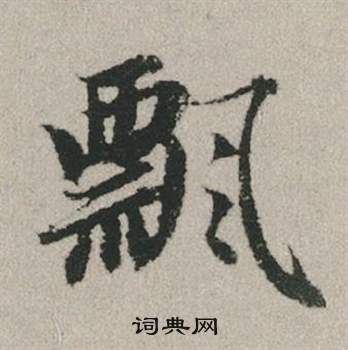 飄
词典网